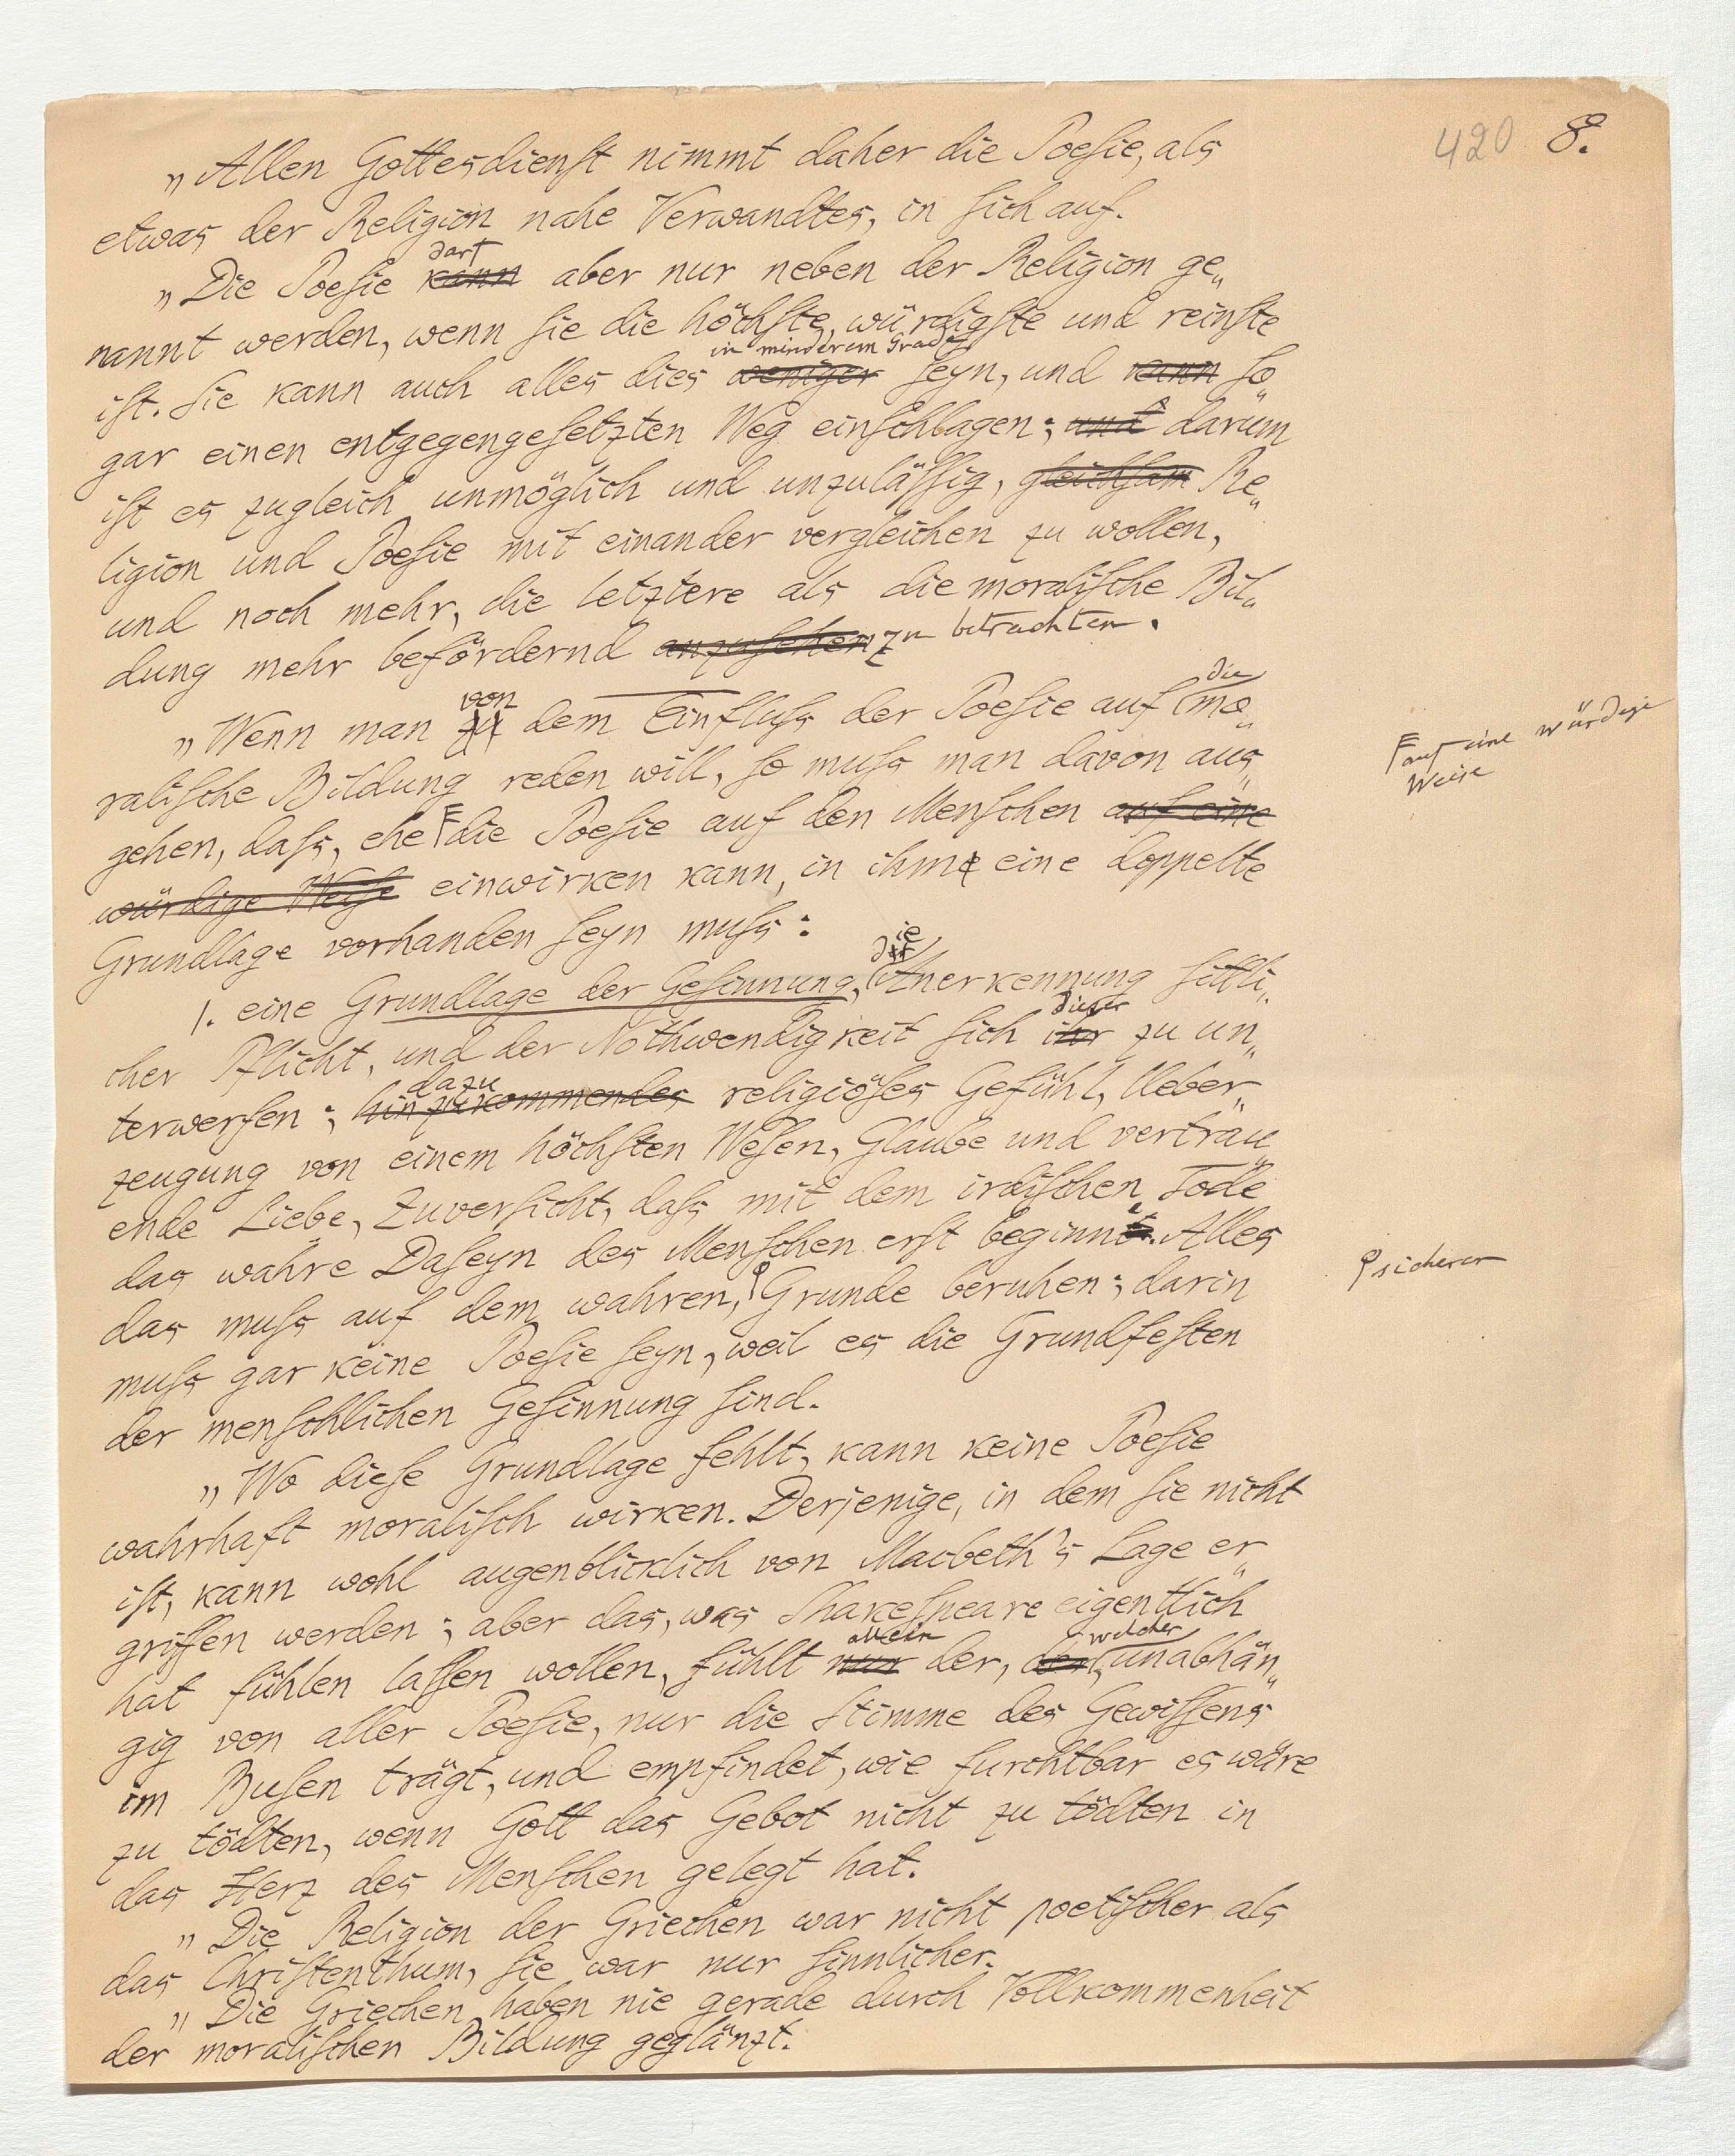 420 8.
„Allen Gottesdienst nimmt daher die Poesie, als
etwas der Religion nahe Verwandtes, in sich auf.
darf
„Die Poesie kann aber nur neben der Religion ge„
nannt werden, wenn sie die höchste, würdigste und reinste
in minderem Grade
ist. Sie kann auch alles dies weniger seyn, und kann so„
gar einen entgegengesetzten Weg einschlagen; und darum
ist es zugleich unmöglich und unzulässig, gleichsam Re„
ligion und Poesie mit einander vergleichen zu wollen,
und noch mehr, die letztere als die moralische Bil„
dung mehr befördernd anzusehen zu betrachten.
von die
„Wenn man zu dem Einfluss der Poesie auf mo„
ralische Bildung reden will, so muss man davon aus„
gehen, dass, ehe die Poesie auf den Menschen auf eine
auf eine würdige
Weise
würdige Weise einwirken kann, in ihm eine doppelte
Grundlage vorhanden seyn muss:
die
1. eine Grundlage der Gesinnung, Anerkennung sittli„
dieser
cher Pflicht, und der Nothwendigkeit sich ihr zu un„
dazu
terwerfen; hinzukommendes religiöses Gefühl, Ueber„
zeugung von einem höchsten Wesen, Glaube und vertrau„
ende Liebe, Zuversicht, dass mit dem irdischen Tode
das wahre Daseyn des Menschen erst beginne. Alles
das muss auf dem wahren, Grunde beruhen; darin
sicherer
muss gar keine Poesie seyn, weil es die Grundfesten
der menschlichen Gesinnung sind.
„Wo diese Grundlage fehlt, kann keine Poesie
wahrhaft moralisch wirken. Derjenige, in dem sie nicht
ist, kann wohl augenblicklich von Macbeth's Lage er„
griffen werden; aber das, was Shakespeare eigentlich
allein welcher
hat fühlen lassen wollen, fühlt nur der, der unabhän„
gig von aller Poesie, nur die Stimme des Gewissens
im Busen trägt, und empfindet, wie furchtbar es wäre
zu tödten, wenn Gott das Gebot nicht zu tödten in
das Herz des Menschen gelegt hat.
„Die Religion der Griechen war nicht poetischer als
das Christenthum, sie war nur sinnlicher.
„Die Griechen haben nie gerade durch Vollkommenheit
der moralischen Bildung geglänzt.